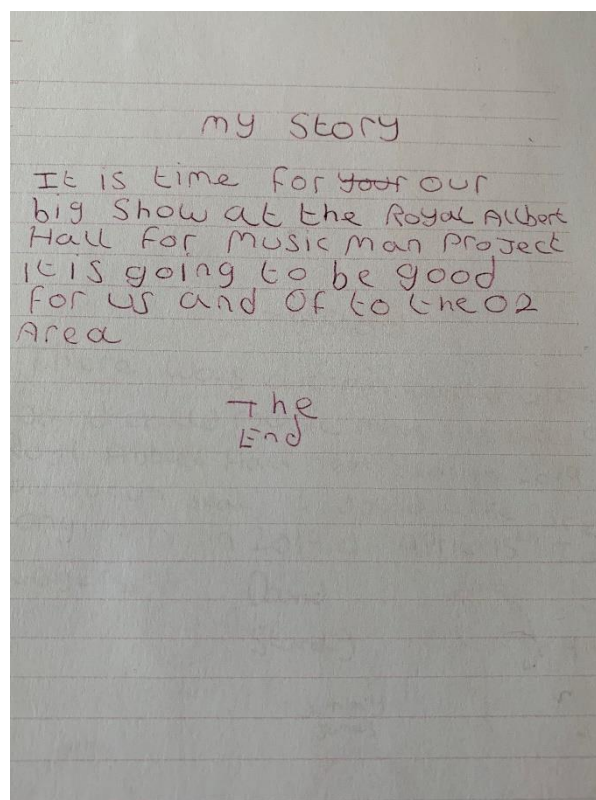 my Story
It is time for your our
big Show at the Royal Allbert
Hall for Music Man Project
it is going to be good
for us and Of to the O2
Area
The
End